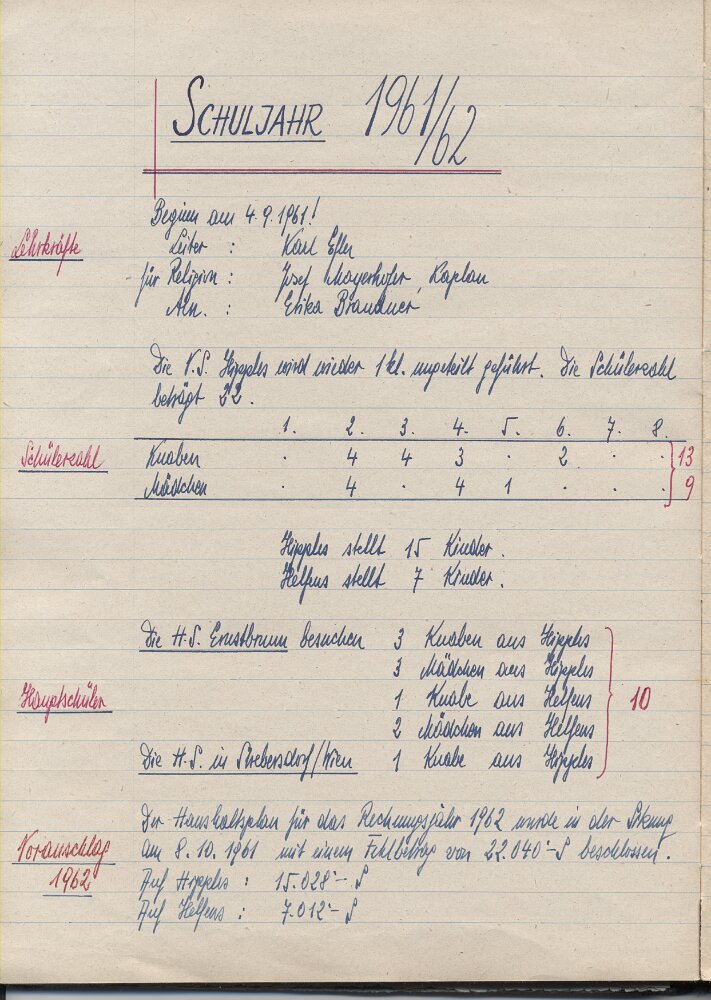 SCHULJAHR 1961/62
Beginn am 4.9.1961!
Lehrkräfte
Leiter : Karl Eller
für Religion : Josef Mayerhofer, Kaplan
Aln. : Erika Brandner
Die V.S. Hipples wird wieder 1kl. ungeteilt geführt. Die Schülerzahl
beträgt 22.
1. 2. 3. 4. 5. 6. 7. 8.
Schülerzahl
Knaben . 4 4 3 . 2 . . 13
Mädchen . 4 . 4 1 . . . 9
Hipples stellt 15 Kinder.
Helfens stellt 7 Kinder.
Die H.S. Ernstbrunn besuchen 3 Knaben aus Hipples
3 Mädchen aus Hipples
Hauptschüler
1 Knabe aus Helfens 10
2 Mädchen aus Helfens
Die H.S. in Strebersdorf/Wien 1 Knabe aus Hipples
Voranschlag
1962
Der Haushaltsplan für das Rechnungsjahr 1962 wurde in der Sitzung
am 8.10.1961 mit einem Fehlbetrag von 22.040'– S beschlossen.
Auf Hipples : 15.028'– S
Auf Helfens : 7.012'– S